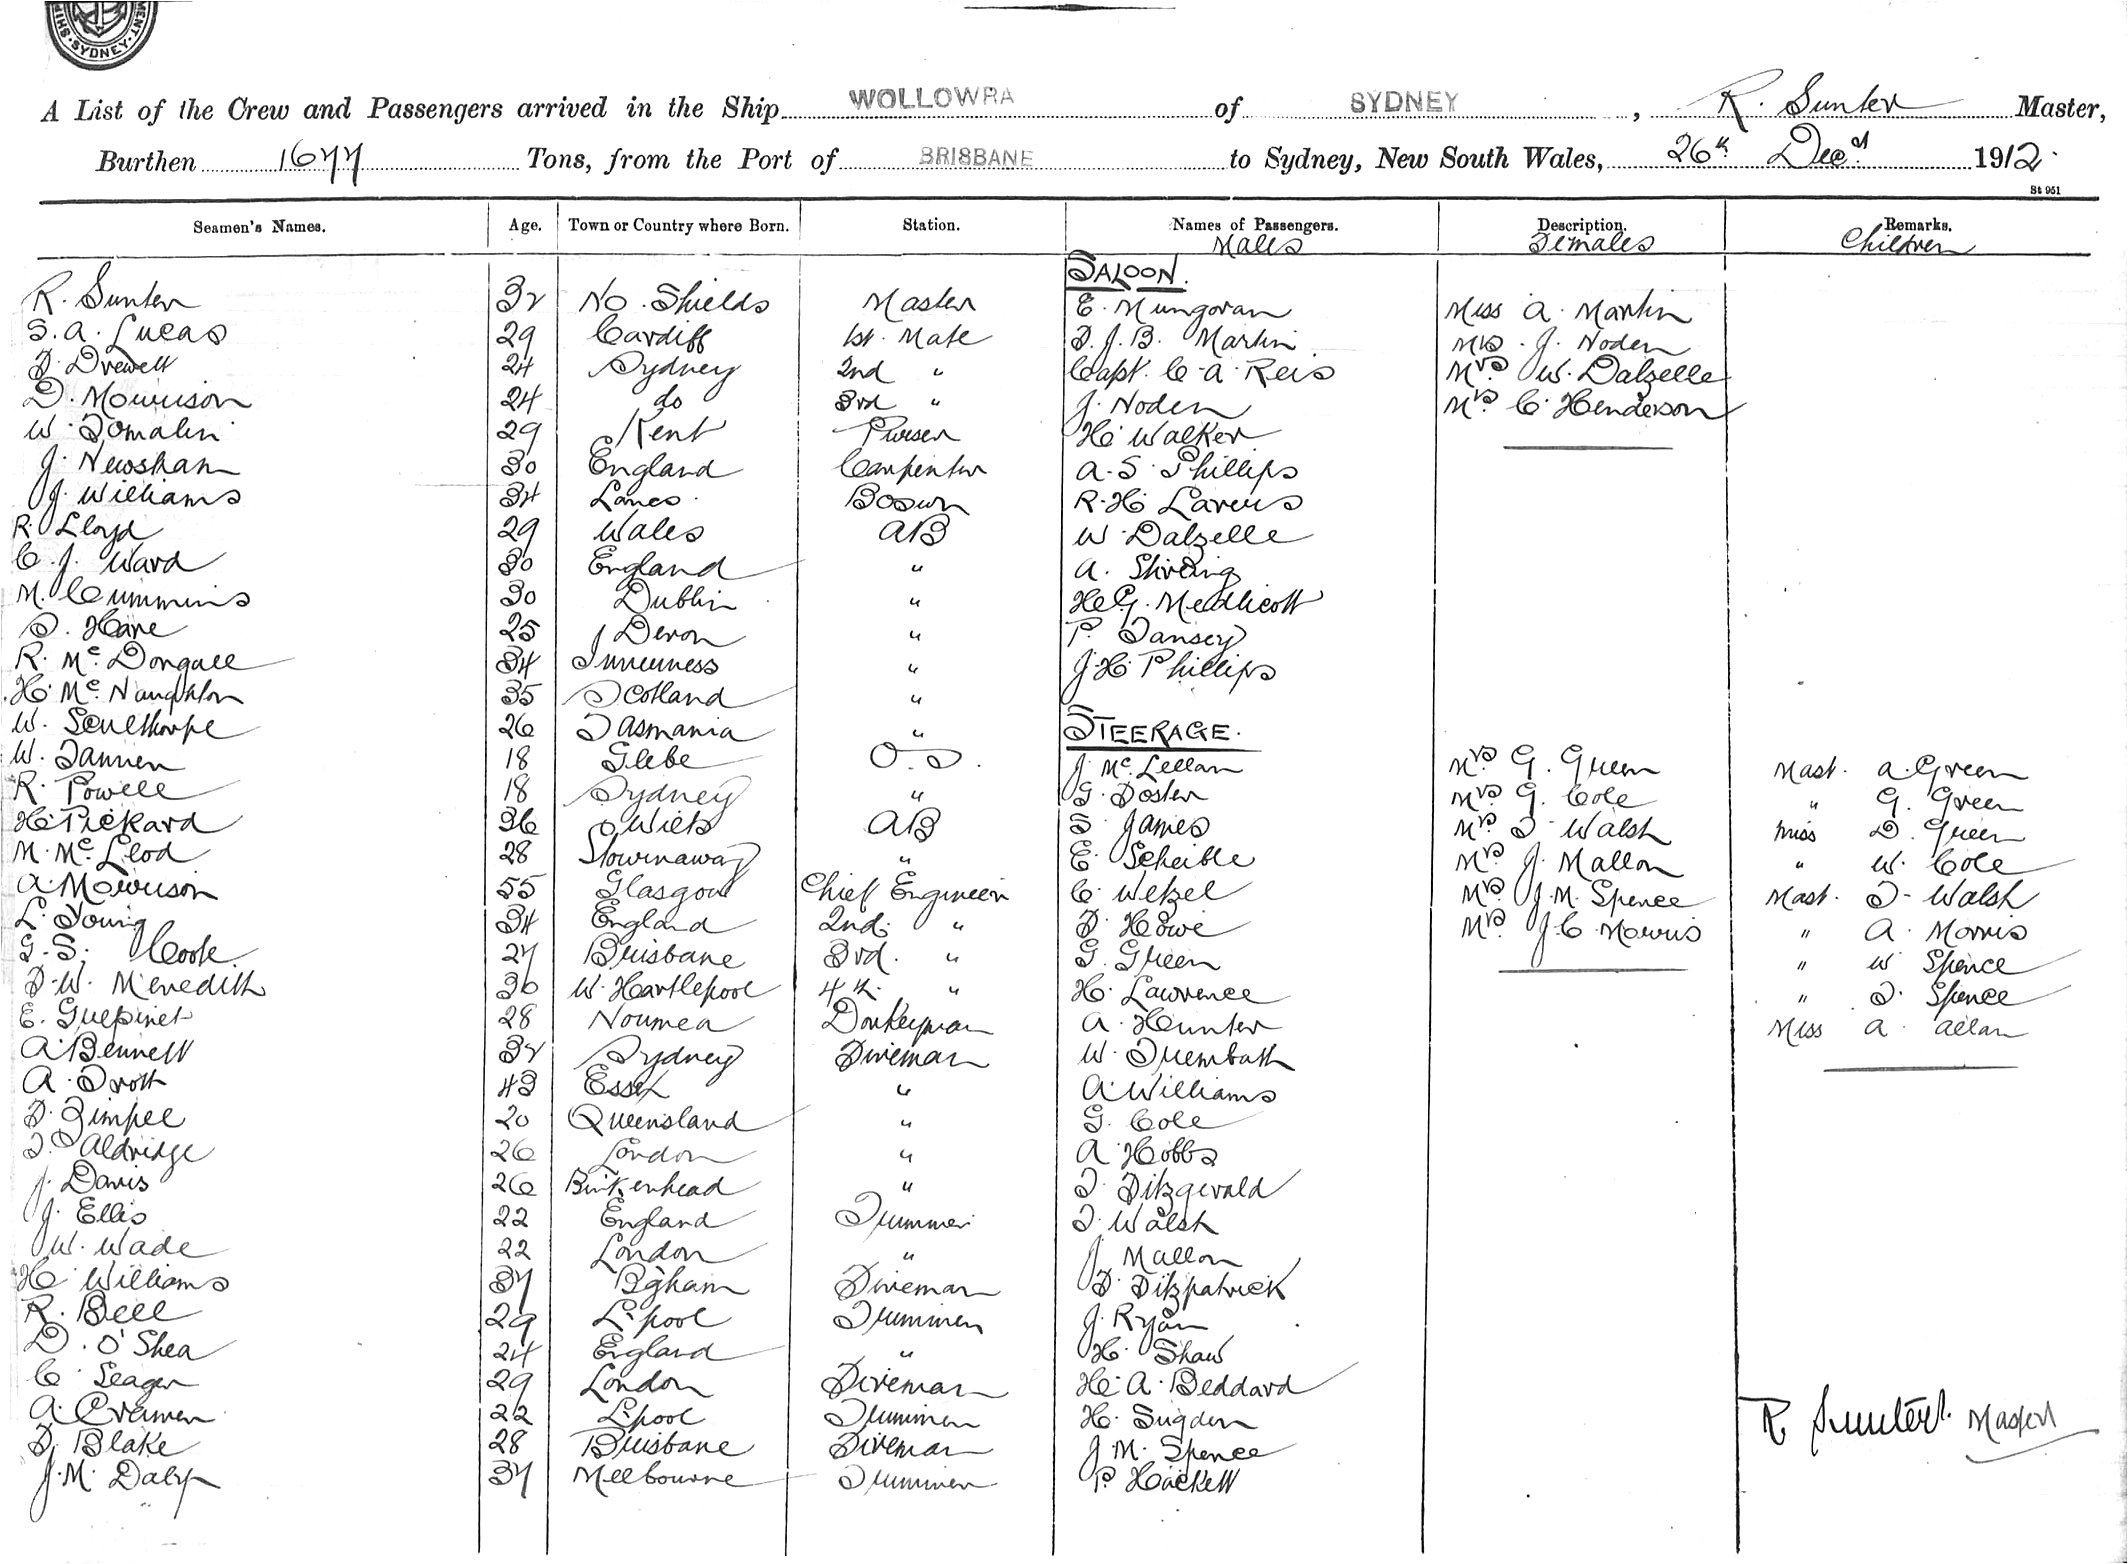 SYDNEY
A List of the Crew and Passengers arrived in the Ship WOLLOWRA of SYDNEY, R. Sunter Master,
Burthen 1677 Tons, from the Port of BRISBANE to Sydney, New South Wales, 26th Decr 1912.
St 951
Seamen's Names. Age. Town or Country where Born. Station. Names of Passengers. Description. Remarks.
Males Females Children
SALOON.
R. Sunter 32 No. Shields Master E. Mungovan Miss A. Martin
S. A. Lucas 29 Cardiff 1st. Mate F. J. B. Martin Mrs. J. Noden
F. Drewett 24 Sydney 2nd " Capt. C. A. Reis Mrs W. Dalzelle
D. Morrison 24 do 3rd " J. Noden Mrs C. Henderson
W. Tomalin 29 Kent Purser H. Walker
J. Newsham 30 England Carpenter A. S. Phillips
J. Williams 34 Lancs. Bosun R. H. Larcus
R. Lloyd 29 Wales AB W. Dalzelle
C. J. Ward 30 England " A. Stirling
M. Cummins 30 Dublin " H. G. Medlicott
S. Hare 25 Devon " P. Tansey
R. McDongall 34 Inverness " J. H. Phillips
H. McNaughton 35 Scotland "
W. Sculthorpe 26 Tasmania " STEERAGE.
W. Tanner 18 Glebe O.S. J. McLellan Mrs G. Green Mast. A. Green
R. Powell 18 Sydney " G. Foster Mrs G. Cole " G. Green
H. Pickard 36 Wilts AB S. James Mrs T. Walsh Miss D. Green
M. McLeod 28 Stornaway " E. Scheible Mrs J. Mallon " W. Cole
A. Morrison 55 Glasgow Chief Engineer C. Wetzel Mrs J. M. Spence Mast. T. Walsh
L. Young 34 England 2nd. " F. Howe Mrs J. C. Morris " A. Morris
G. S. Cook 27 Brisbane 3rd. " G. Green " W. Spence
F. W. Meredith 36 W. Hartlepool 4th. " H. Lawrence " T. Spence
E. Guepinet 28 Noumea Donkeyman A. Hunter Miss A. Allan
A. Bennett 32 Sydney Fireman W. Trembath
A. Trott 43 Essex " A. Williams
F. Zimpel 20 Queensland " G. Cole
T. Aldridge 26 London " A. Hobbs
J. Davis 26 Birkenhead " T. Fitzgerald
J. Ellis 22 England Trimmer T. Walsh
W. Wade 22 London " J. Mallon
H. Williams 37 Bgham Fireman F. Fitzpatrick
R. Bell 29 L.pool Trimmer J. Ryan
D. O'Shea 24 England " H. Shaw
C. Seager 29 London Fireman H. A. Beddard
A. 22 L.pool Trimmer H. Sugden R. Sunter. Master
F. Blake 28 Brisbane Fireman J. M. Spence
J. M. Daly 37 Melbourne Trimmer P. Hackett